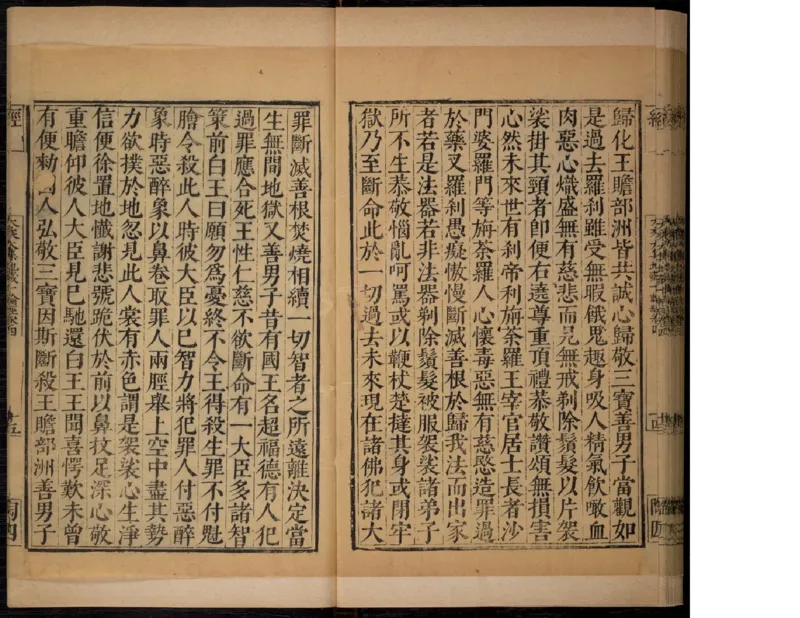 歸化王贍部洲皆共誠心歸敬三寶善男子當觀如
是過去羅利雖受無暇餓鬼趣身吸人精氣飲噉血
肉惡心熾盛無有慈悲而見無戒剃除鬚髮以片袈
裟掛其頸者即便右遶尊重頂禮恭敬讚頌無損害
心然未來世有刹帝利旃荼羅王宰官居士長者沙
門婆羅門等旃荼羅人心懷毒惡無有慈愍造罪過
於藥叉羅刹愚癡慠慢斷滅善根於歸我法而出家
者若是法器若非法器剃除鬚髮被服袈裟諸弟子
所不生恭敬惱亂呵罵或以鞭杖楚撻其身或閉牢
獄乃至斷命此於一切過去未來現在諸佛犯諸大
罪斷滅善根焚燒相續一切智者之所遠離決定當
生無間地獄又善男子昔有國王名超福德有人犯
過罪應合死王性仁慈不欲斷命有一大臣多諸智
策前白王曰願勿爲憂終不令王得殺生罪不付魁
膾令殺此人時彼大臣以巳智力將犯罪人付惡醉
象時惡醉象以鼻卷取罪人兩脛舉上空中盡其勢
力欲撲於地忽見此人裳有赤色謂是袈裟心生淨
信便徐置地懺謝悲號跪伏於前以鼻抆足深心敬
重瞻仰彼人大臣見巳馳還白王王聞喜愕歎未曾
有便勅人弘敬三寶因斯斷殺王贍部洲善男子